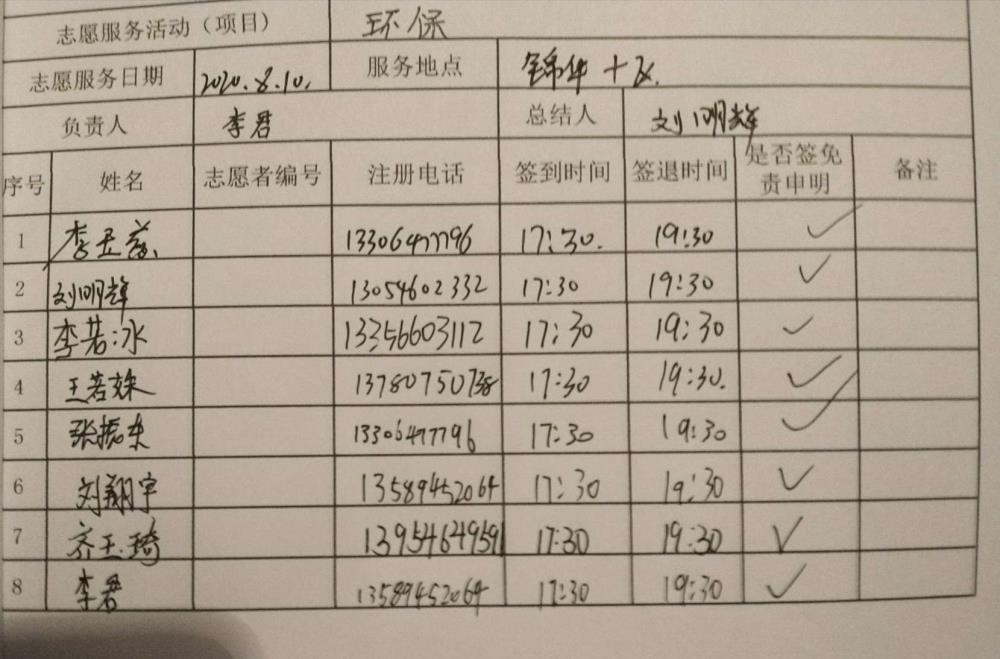 志愿服务活动（项目） 环保
志愿服务日期 2020.8.10. 服务地点 锦华十区.
负责人 李君 总结人 刘明辉
序号 姓名 志愿者编号 注册电话 签到时间 签退时间 是否签免责申明 备注
1 李 13306477796 17:30. 19:30 ✓
2 刘明辉 13054602332 17:30 19:30 ✓
3 李若冰 13356603112 17:30 19:30 ✓
4 王若姝 13780750738 17:30 19:30. ✓
5 张振东 13306477796 17:30 19:30 ✓
6 刘翔宇 13589452064 17:30 19:30 ✓
7 齐玉琦 13954649591 17:30 19:30 ✓
8 李君 13589452064 17:30 19:30 ✓